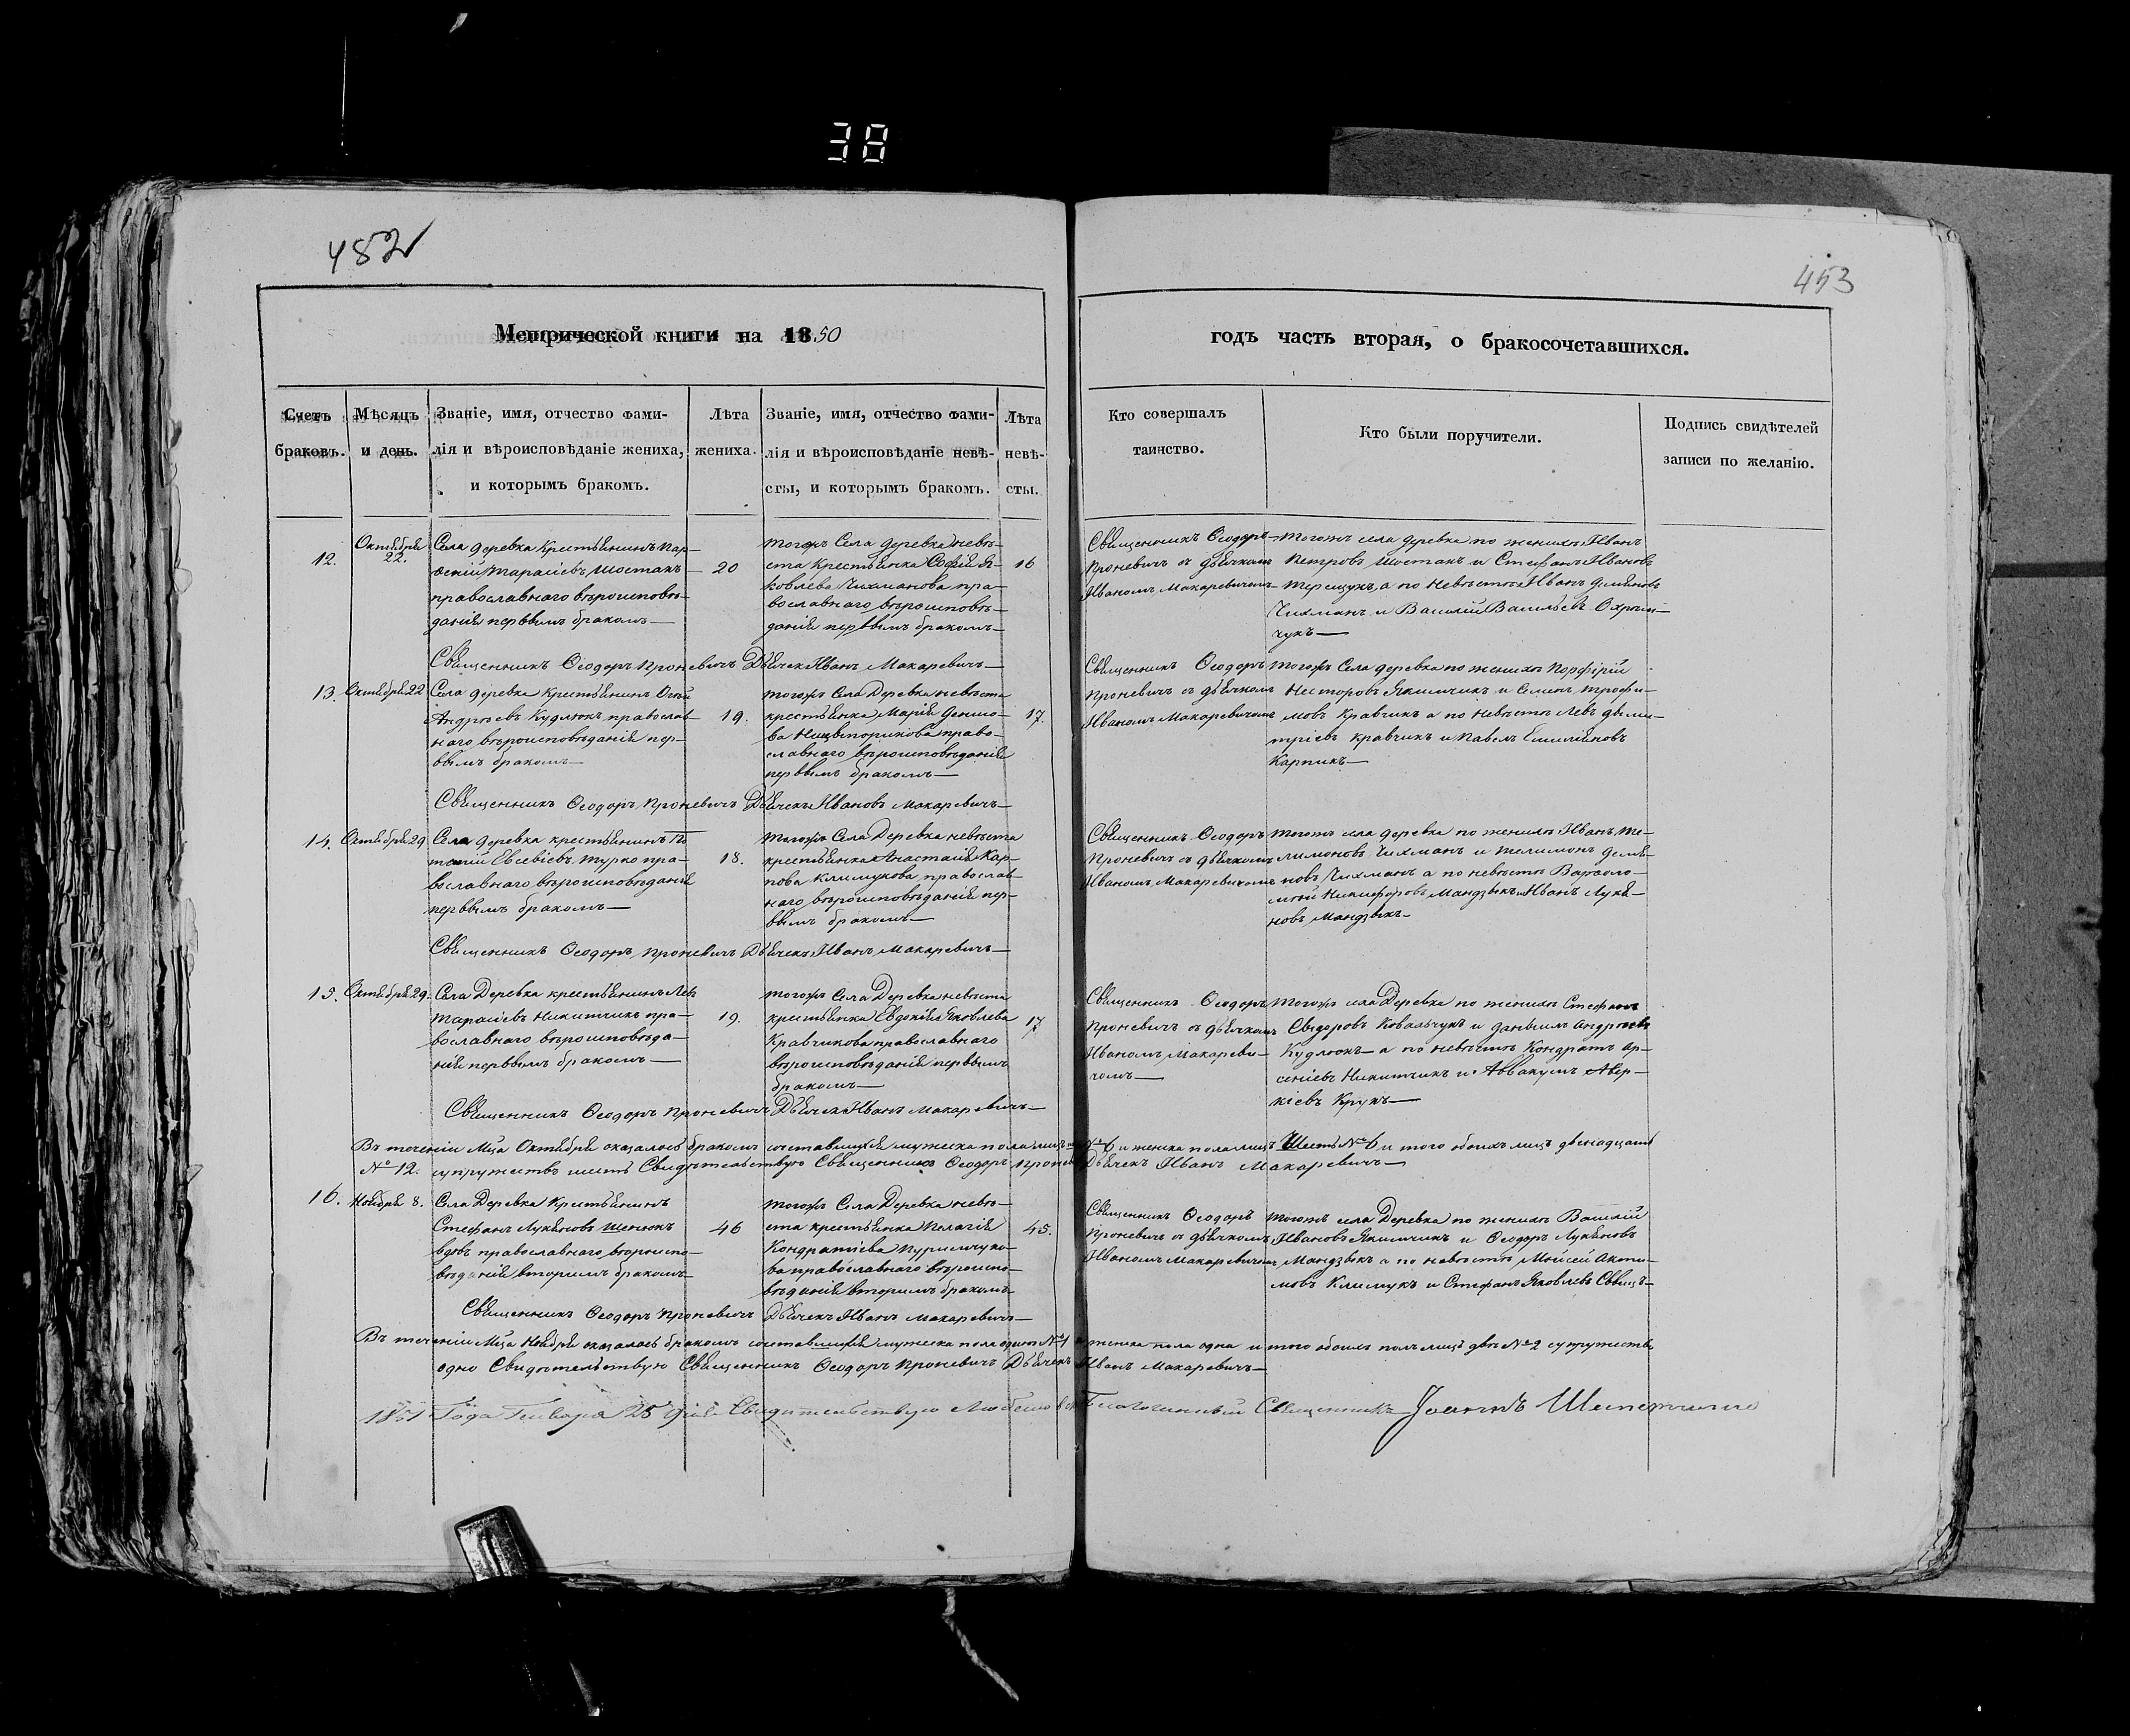 38
482
453
Метрической книги на 1850
годъ часть вторая, о бракосочетавшихся.
Счетъ браковъ.
Мѣсяцъ и день.
Званіе, имя, отчество фами-
лія и вѣроисповѣданіе жениха,
и которымъ бракомъ.
Лѣта
жениха.
Званіе, имя, отчество фами-
лія и вѣроисповѣданіе невѣ-
сты, и которымъ бракомъ.
Лѣта
невѣ-
сты.
Кто совершалъ
таинство.
Кто были поручители.
Подпись свидѣтелей
записи по желанію.
12.
Октября
22.
Села деревка Крестьянинъ Пар-
Тарасіевъ Шостакъ
православнаго вѣроисповѣ-
данія первымъ бракомъ
20
тогожъ Села деревка невѣ-
ста крестьянка Софія Я-
ковлева Чихманова пра-
вославнаго вѣроисповѣ-
данія первымъ бракомъ
16
Священникъ Ѳеодоръ
Проневичъ съ дьячкомъ
Иваномъ Макаревичомъ
тогожъ села деревка по женихѣ Иванъ
Петровъ Шостакъ и Стефанъ Ивановъ
Терещукъ, а по невѣстѣ Иванъ Демяновъ
Чихманъ и Василій Васильевъ Охрим-
чукъ
Священникъ Ѳеодоръ Проневичъ Дьячекъ Иванъ Макаревичъ
13.
Октября 22
Села деревка Крестьянинъ
Андреевъ Кудлюкъ православ-
наго вѣроисповѣданія пер-
вымъ бракомъ
19.
тогожъ Села Деревка невѣста
крестьянка Марія Денисо-
ва православ-
славнаго вѣроисповѣданія
первымъ бракомъ
17
Священникъ Ѳеодоръ
Проневичъ съ дьячкомъ
Иваномъ Макаревичомъ
тогожъ Села деревка по женихѣ Порфирій
Несторовъ Якимчикъ и Семенъ Трофи-
мовъ Кравчикъ а по невѣстѣ Левъ Дыми-
тріевъ Кравчикъ и Павелъ Емиліяновъ
Карпикъ
Священникъ Ѳеодоръ Проневичъ Дьячекъ Ивановъ Макаревичъ
14.
Октября 29
Села деревка крестьянинъ
Евсевіевъ Турко пра-
вославнаго вѣроисповѣданія
первымъ бракомъ
18.
тогожъ Села Деревка невѣста
крестьянка Анастасія Кар-
пова Климукова православ-
наго вѣроисповѣданія пер-
вымъ бракомъ
Священникъ Ѳеодоръ
Проневичъ съ дьячкомъ
Иваномъ Макаревичомъ
тогожъ села деревка по женихѣ Иванъ Те-
лимоновъ Чихманъ и Телимонъ Демя-
новъ Чихманъ а по невѣстѣ Варѳоло-
мей Никифоровъ Мандзюкъ и Иванъ Лукя-
новъ Мандзюкъ
Священникъ Ѳеодоръ Проневичъ Дьячекъ Иванъ Макаревичъ
15.
Октября 29.
Села Деревка крестьянинъ Левъ
Тарасіевъ Никитчикъ пра-
вославнаго вѣроисповѣда-
нія первымъ бракомъ
19.
тогожъ Села Деревка невѣста
крестьянка Евдокія Яковлева
Кравчикова православнаго
вѣроисповѣданія первымъ
бракомъ
17
Священникъ Ѳеодоръ
Проневичъ съ дьячкомъ
Иваномъ Макареви-
чомъ
тогожъ села Деревка по женихѣ Стефанъ
Сидоровъ Ковальчукъ и Даніилъ Андреевъ
Кудлюкъ а по невѣстѣ Кондратъ Ар-
сеніевъ Никитчикъ и Аввакумъ Авер-
кіевъ Крукъ
Священникъ Ѳеодоръ Проневичъ Дьячекъ Иванъ Макаревичъ
Въ теченіи Мца Октября оказалось бракомъ сочетавшихся мужеска пола лицъ №6 и женска пола лицъ Шесть №6 и того обоихъ лицъ двенадцать
№12. супружествъ шесть Свидѣтельствую Священникъ Ѳеодоръ Проневичъ Дьячекъ Иванъ Макаревичъ
16.
Ноября 8.
Села Деревка Крестьянинъ
Стефанъ Лукяновъ Шенюкъ
вдовъ православнаго вѣроиспо-
вѣданія вторымъ бракомъ
46
тогожъ Села Деревка невѣ-
ста крестьянка Пелагія
Кондратіева Куримчуко-
ва православнаго вѣроиспо-
вѣданія вторымъ бракомъ
45.
Священникъ Ѳеодоръ
Проневичъ съ дьячкомъ
Иваномъ Макаревичомъ
тогожъ села Деревка по женихѣ Василій
Ивановъ Якимчикъ и Ѳеодоръ Лукяновъ
Мандзюкъ а по невѣстѣ Мойсей
Климукъ и Стефанъ Яковлевъ
Священникъ Ѳеодоръ Проневичъ Дьячекъ Иванъ Макаревичъ
Въ теченіи Мца Ноября оказалось бракомъ сочетавшихся мужеска пола одинъ №1 женска пола одна и того обоихъ полъ лицъ двѣ №2 супружество
одно Свидѣтельствую Священникъ Ѳеодоръ Проневичъ Дьячекъ Иванъ Макаревичъ
1851 Года Генваря 25 дня Свидѣтельствую Благочинный Священникъ Іоаннъ